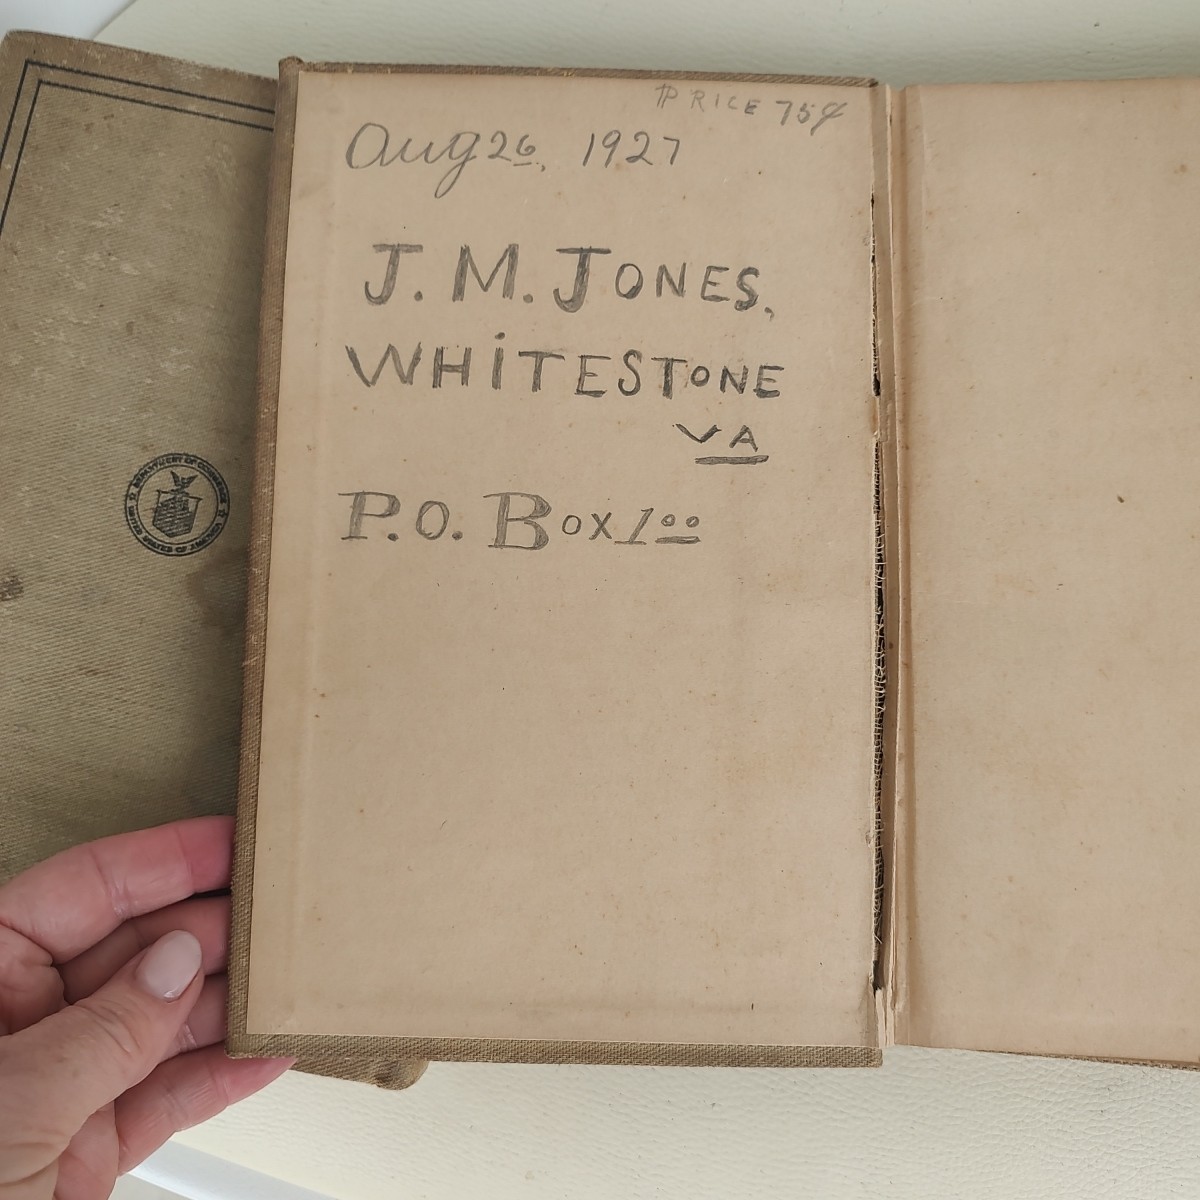 PRICE 75¢
Aug 26, 1927
J. M. JONES,
WHiTESTONE
VA
P.O. BOX 100
DEPARTMENT OF COMMERCE
UNITED STATES OF AMERICA